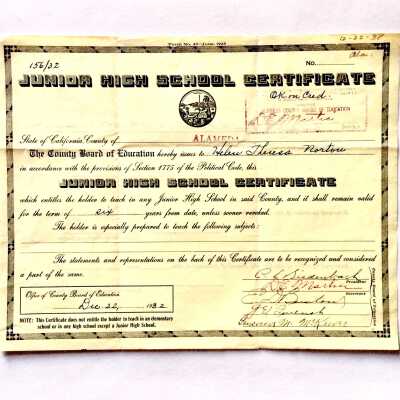 12-22-38
Form No. 43—June, 1928
156/32
No.
Ala.
JUNIOR HIGH SCHOOL CERTIFICATE
OK on Cred.
ALAMEDA COUNTY BOARD OF EDUCATION
D E Martin
State of California, County of ALAMEDA
The County Board of Education hereby issues to Helen Theresa Norton
in accordance with the provisions of Section 1775 of the Political Code, this
JUNIOR HIGH SCHOOL CERTIFICATE
which entitles the holder to teach in any Junior High School in said County, and it shall remain valid
for the term of six years from date, unless sooner revoked.
The holder is especially prepared to teach the following subjects:
The statements and representations on the back of this Certificate are to be recognized and considered
a part of the same.
Office of County Board of Education
Dec 22, 1932
President
D E Martin
Secretary
County Board of Education
NOTE: This Certificate does not entitle the holder to teach in an elementary
school or in any high school except a Junior High School.